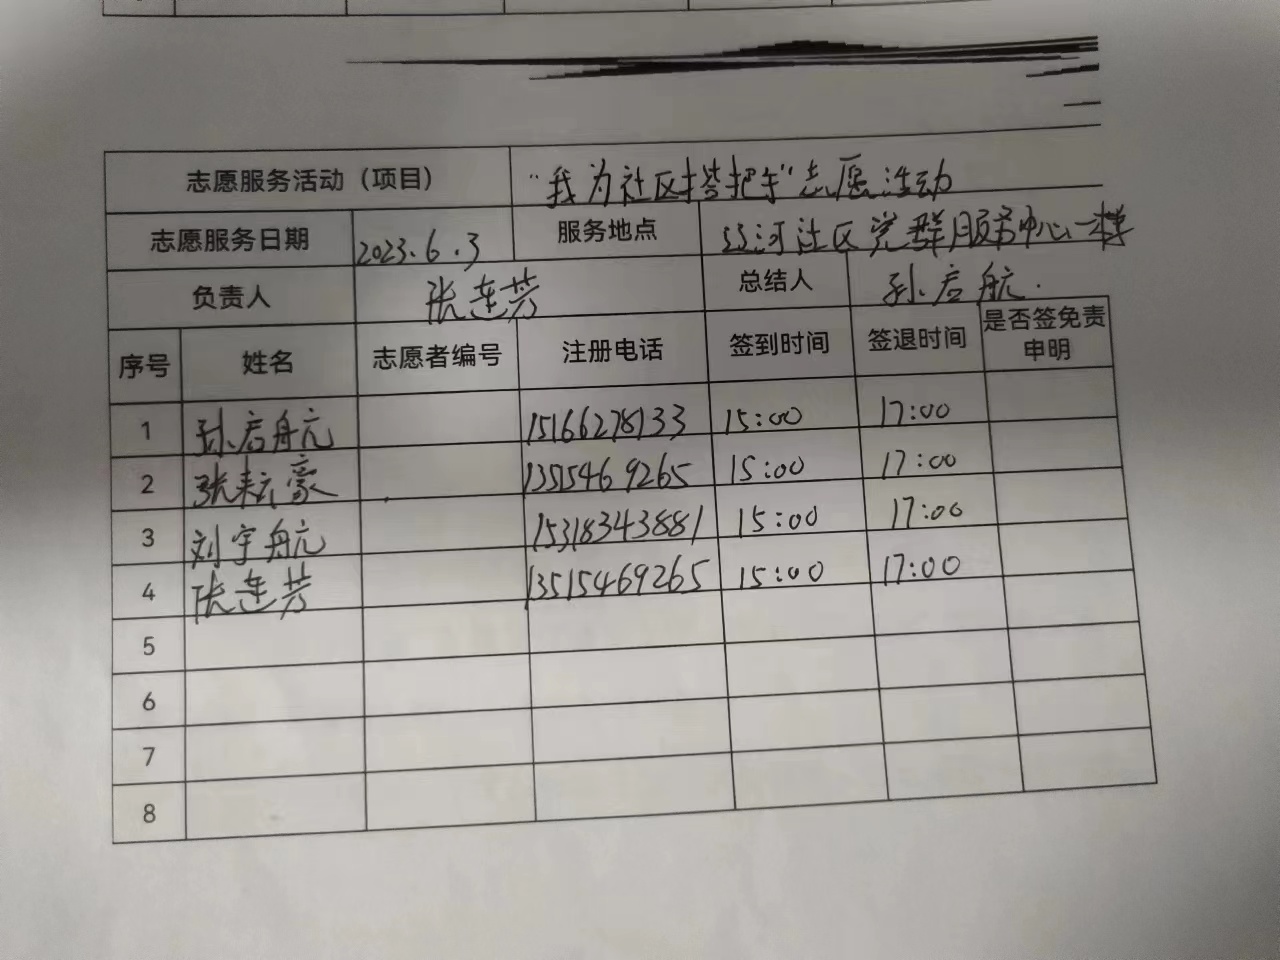 志愿服务活动（项目） "我为社区搭把手"志愿活动
志愿服务日期 2023.6.3 服务地点 河社区党群服务中心一楼
负责人 张连芳 总结人 孙启航.
序号 姓名 志愿者编号 注册电话 签到时间 签退时间 是否签免责申明
1 孙启航 15166278133 15:00 17:00
2 张耘豪 13515469265 15:00 17:00
3 刘宇航 15318343881 15:00 17:00
4 张连芳 13515469265 15:00 17:00
5
6
7
8